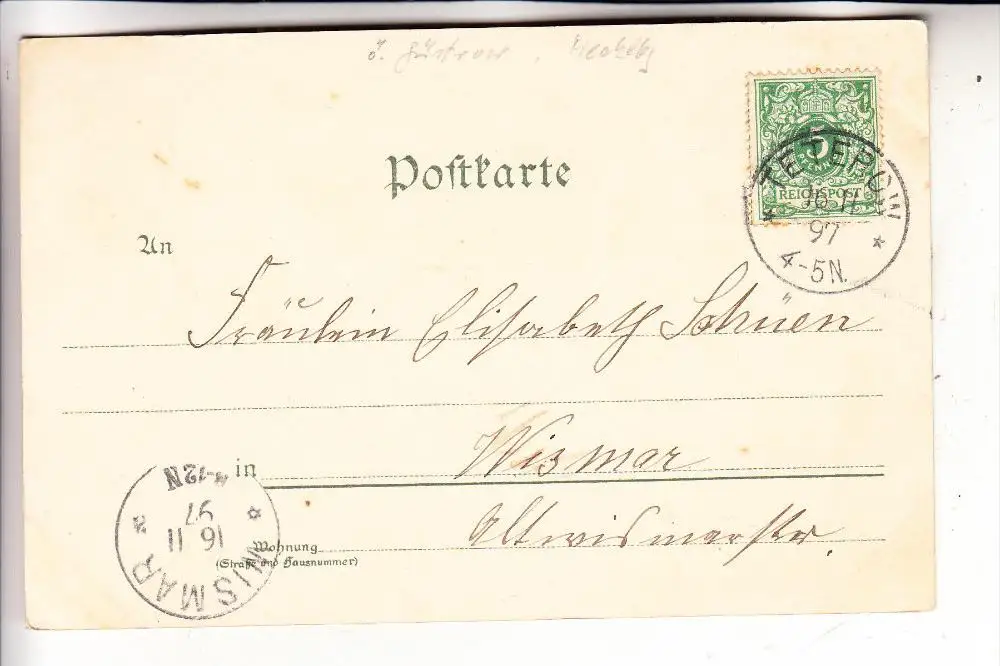 Güstrow, Mecklbg
Postkarte
5
PFENNIG
REICHSPOST
TETEROW
16 11
97
4-5N.
An
Fräulein Elisabeth Schuen
in Wismar
Wohnung Altwismarstr.
(Straße und Hausnummer)
WISMAR
16 11
97
-12N